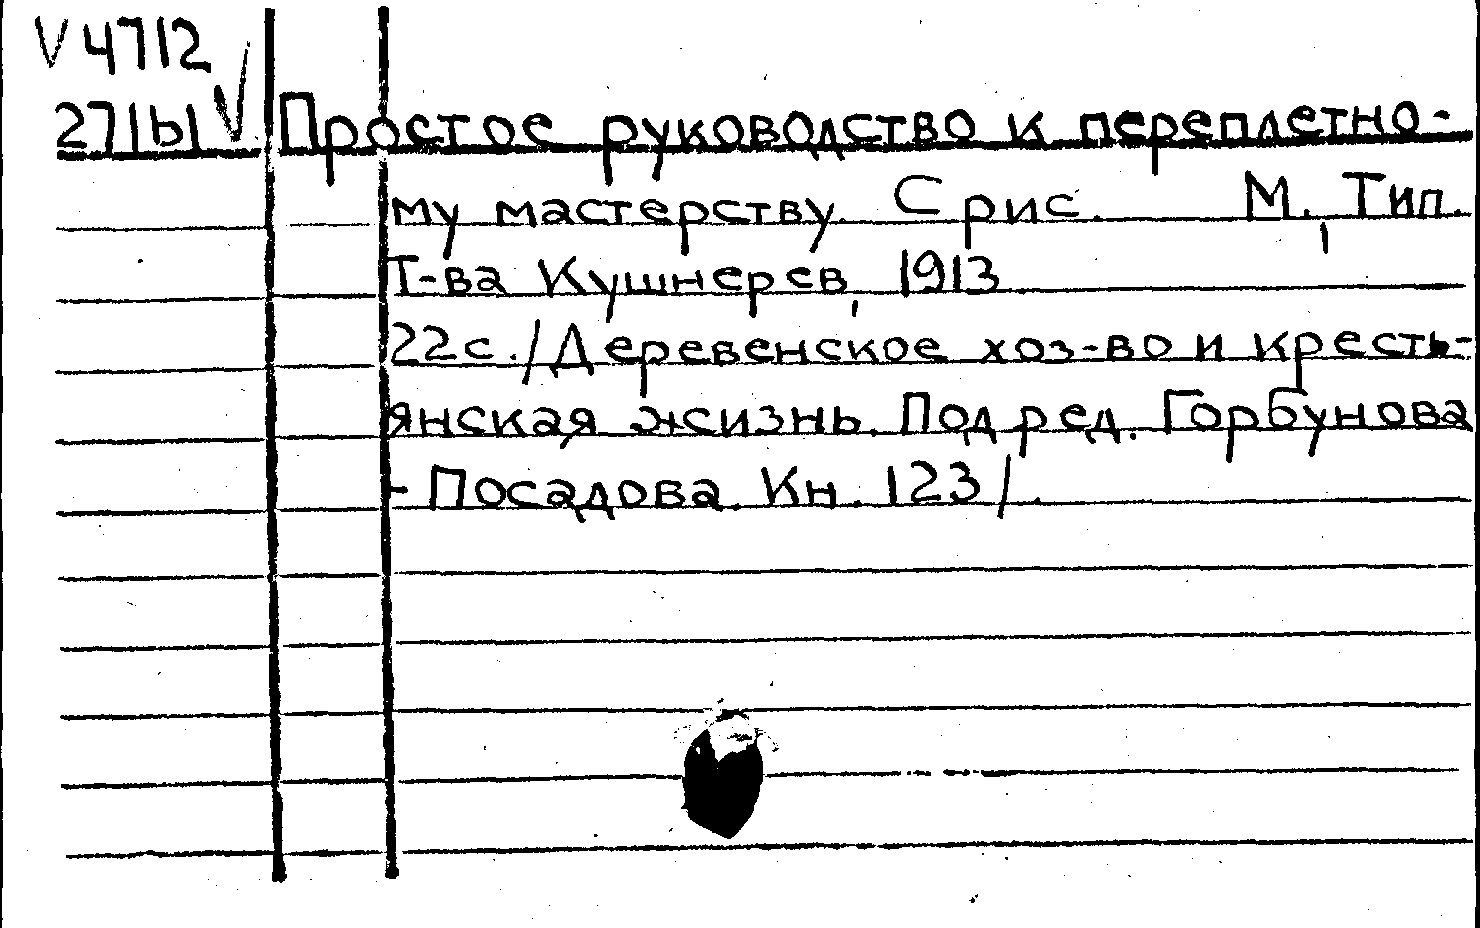 V 4712
271b1 V Простое руководство к переплетно-
му мастерству. С рис. М., Тип.
Т-ва Кушнерев, 1913
22с. /Деревенское хоз-во и кресть-
янская жизнь. Под ред. Горбунова
- Посадова. Кн. 123/.